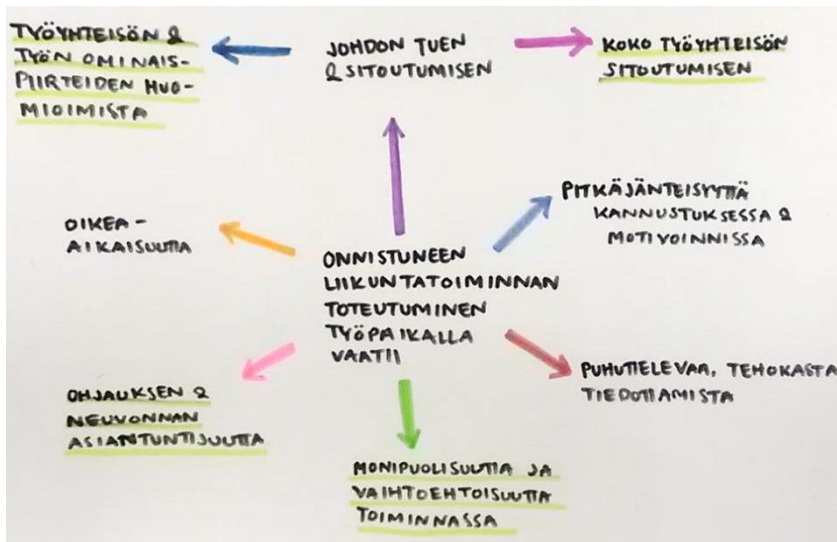 TYÖYHTEISÖN &
TYÖN OMINAIS-
PIIRTEIDEN HUO-
MIOIMISTA
JOHDON TUEN
& SITOUTUMISEN
KOKO TYÖYHTEISÖN
SITOUTUMISEN
OIKEA-
AIKAISUUTTA
PITKÄJÄNTEISYYTTÄ
KANNUSTUKSESSA &
MOTIVOINNISSA
ONNISTUNEEN
LIIKUNTATOIMINNAN
TOTEUTUMINEN
TYÖPAIKALLA
VAATII
OHJAUKSEN &
NEUVONNAN
ASIANTUNTIJUUTTA
PUHUTTELEVAA, TEHOKASTA
TIEDOTTAMISTA
MONIPUOLISUUTTA JA
VAIHTOEHTOISUUTTA
TOIMINNASSA